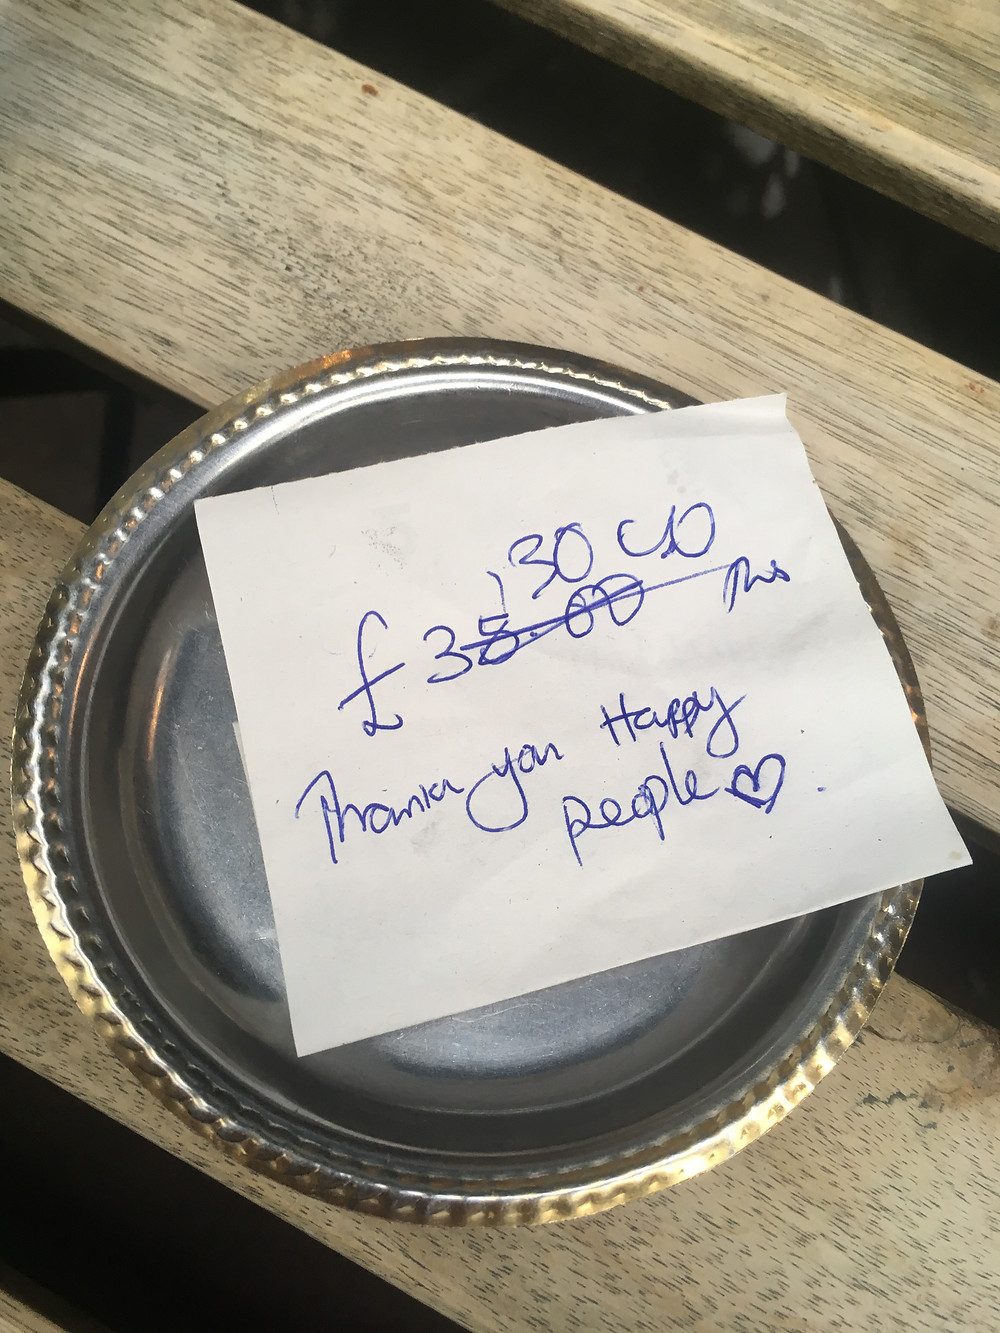 30.00
£ 38.00
Thank you Happy
people